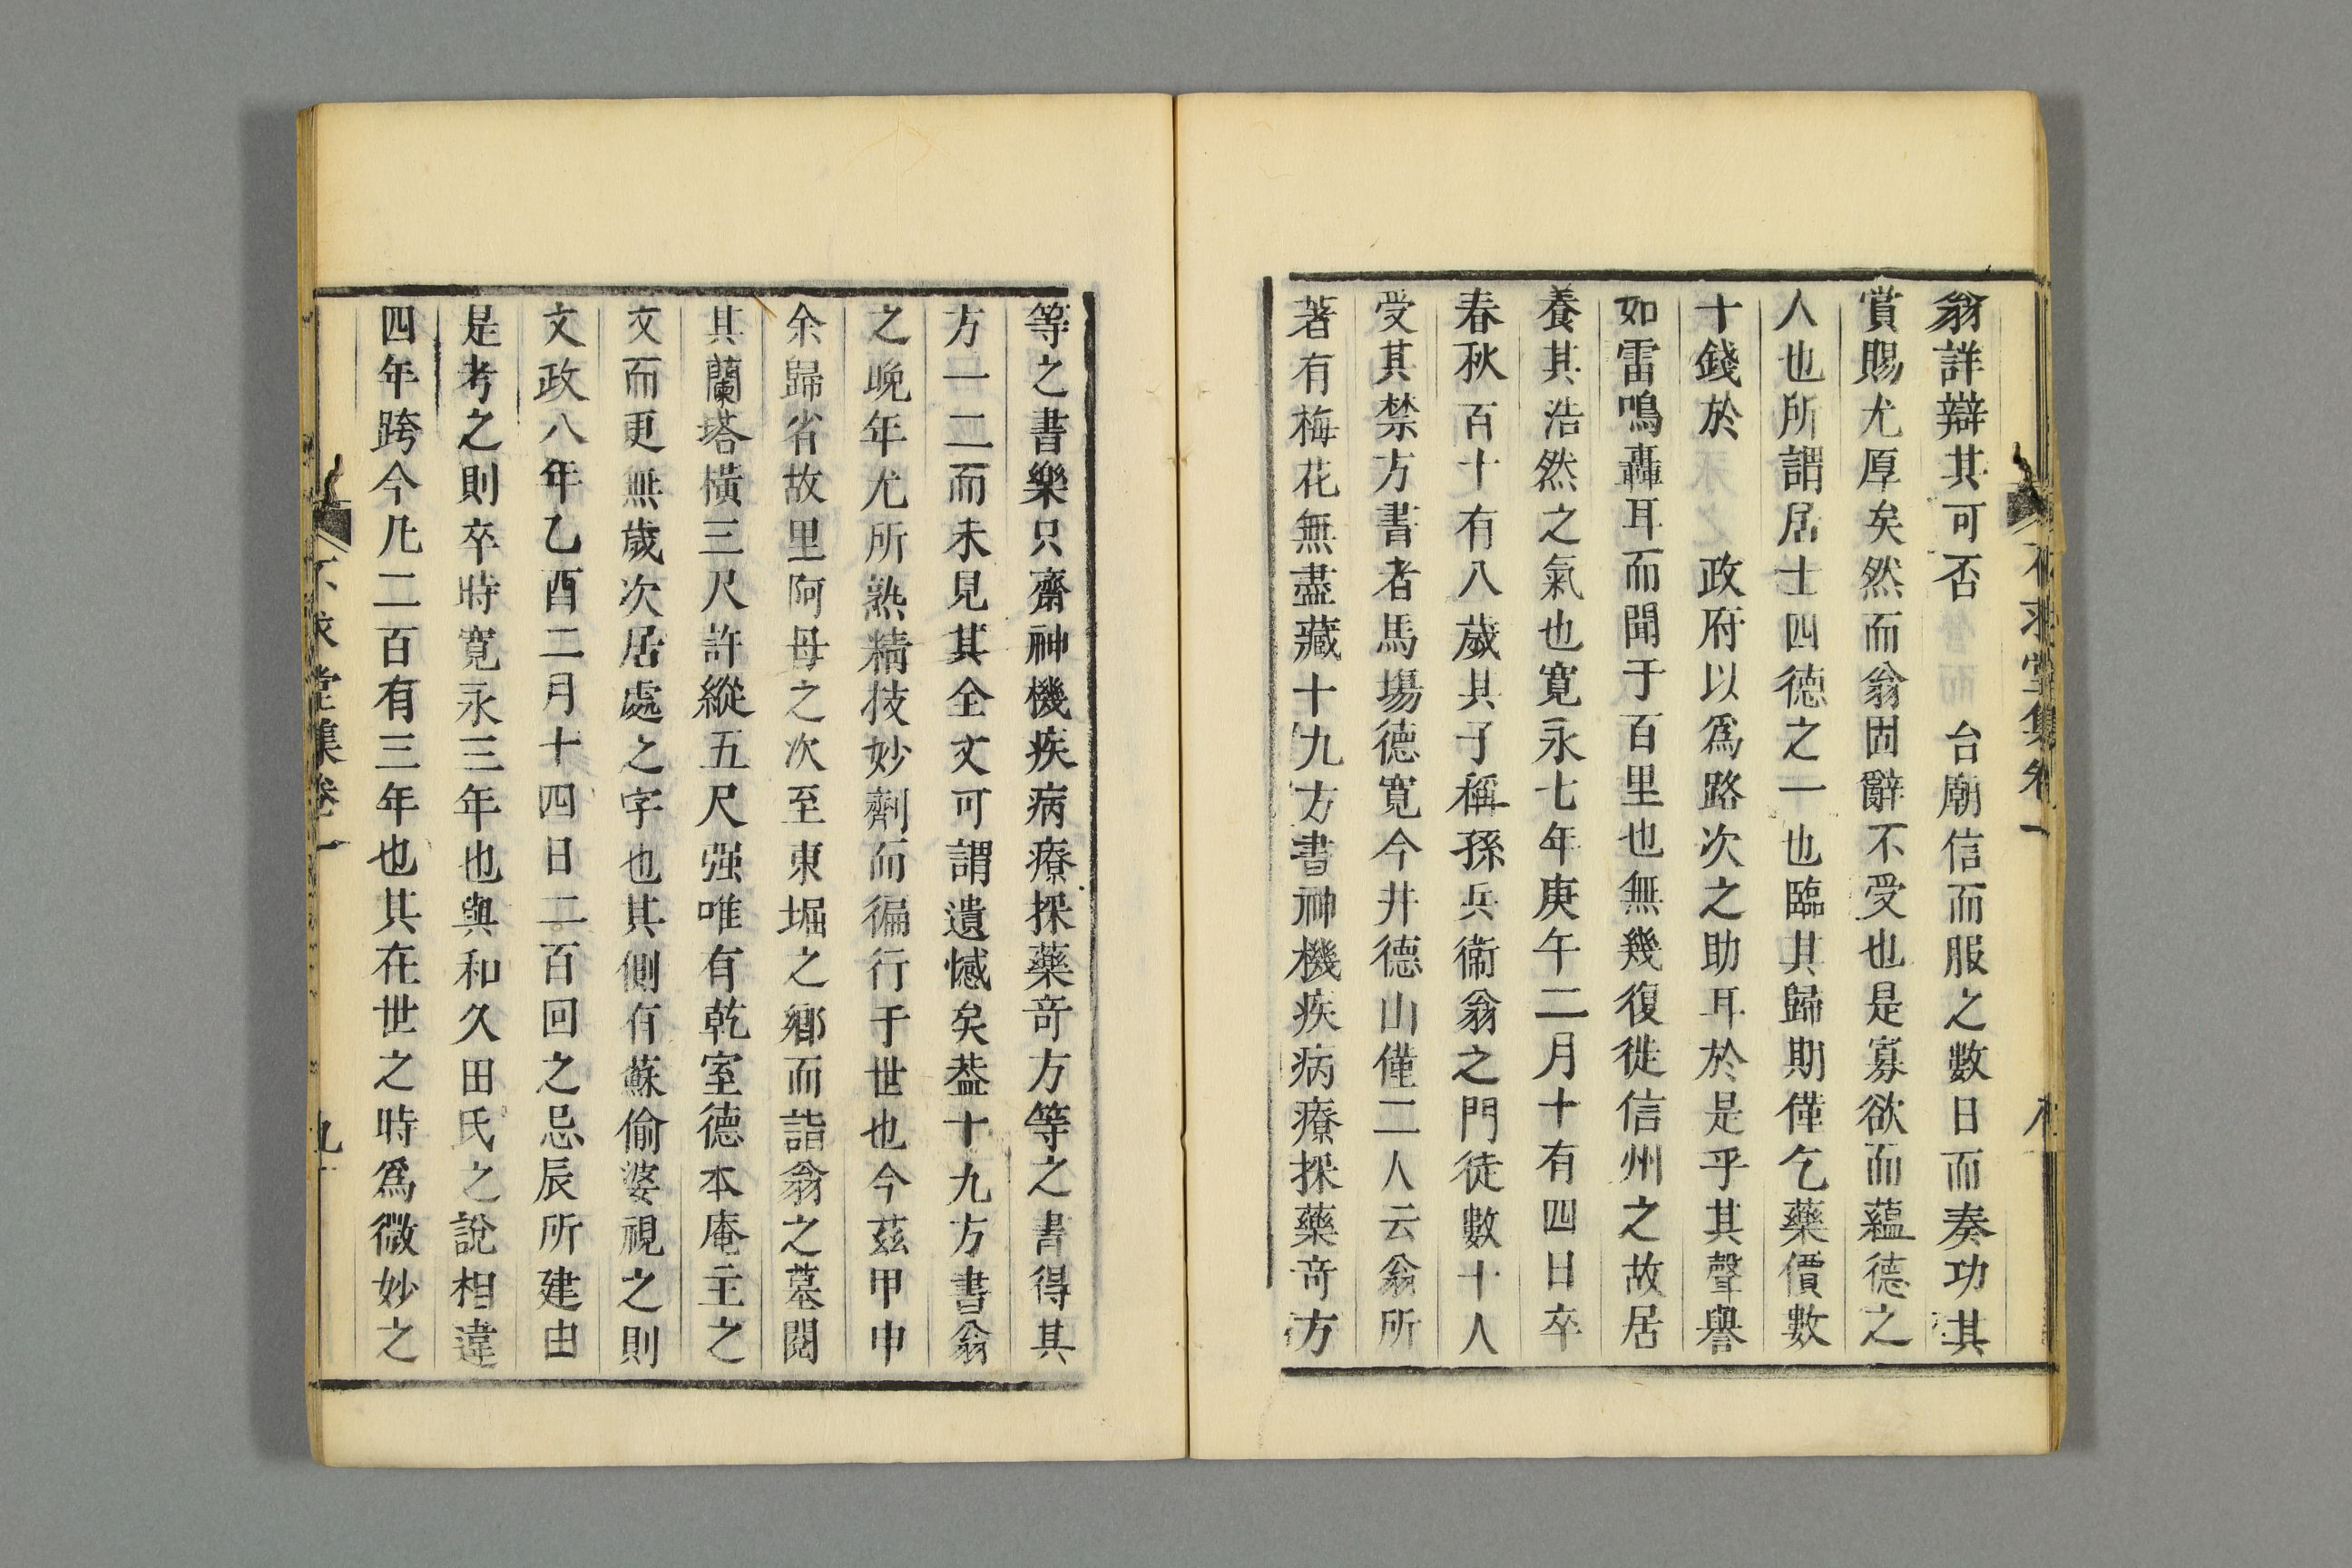 翁詳辯其可否　台廟信而服之數日而奏功其
賞賜尤厚矣然而翁固辭不受也是寡欲而蘊德之
人也所謂居士四德之一也臨其歸期僅乞藥價數
十錢於　政府以爲路次之助耳於是乎其聲譽
如雷鳴轟耳而聞于百里也無幾復徙信州之故居
養其浩然之氣也寬永七年庚午二月十有四日卒
春秋百十有八歲其子稱孫兵衞翁之門徒數十人
受其禁方書者馬場德寬今井德山僅二人云翁所
著有梅花無盡藏十九方書神機疾病療採藥奇方
等之書樂只齋神機疾病療採藥奇方等之書得其
方一二而未見其全文可謂遺憾矣葢十九方書翁
之晚年尤所熟精技妙劑而徧行于世也今茲甲申
余歸省故里阿母之次至東堀之鄉而詣翁之墓閱
其蘭塔橫三尺許縱五尺强唯有乾室德本庵主之
文而更無歲次居處之字也其側有蘇偷婆視之則
文政八年乙酉二月十四日二百回之忌辰所建由
是考之則卒時寬永三年也與和久田氏之說相違
四年跨今凡二百有三年也其在世之時爲微妙之
不求堂集卷一
九